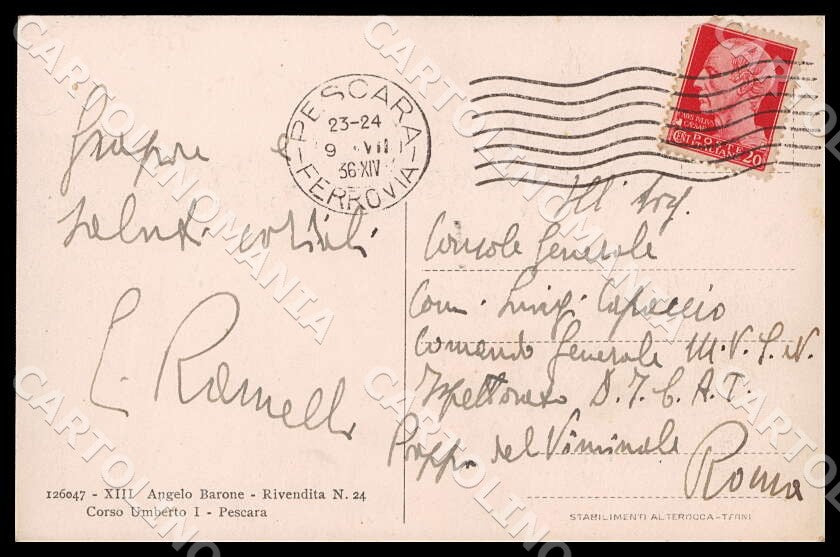 PESCARA
23-24
9 VII
36·XIV
FERROVIA
POSTE
ITALIANE
CENT 20
e
saluti cordiali
L. Ramelli
Ill' Sig.
Console Generale
Com. Luigi Capaccio
Comando Generale M.V.S.N.
Ispettorato D.I.C.A.T.
del Viminale
Roma
126047 - XIII Angelo Barone - Rivendita N. 24
Corso Umberto I - Pescara
STABILIMENTI ALTEROCCA-TERNI
CARTOLINOMANIA